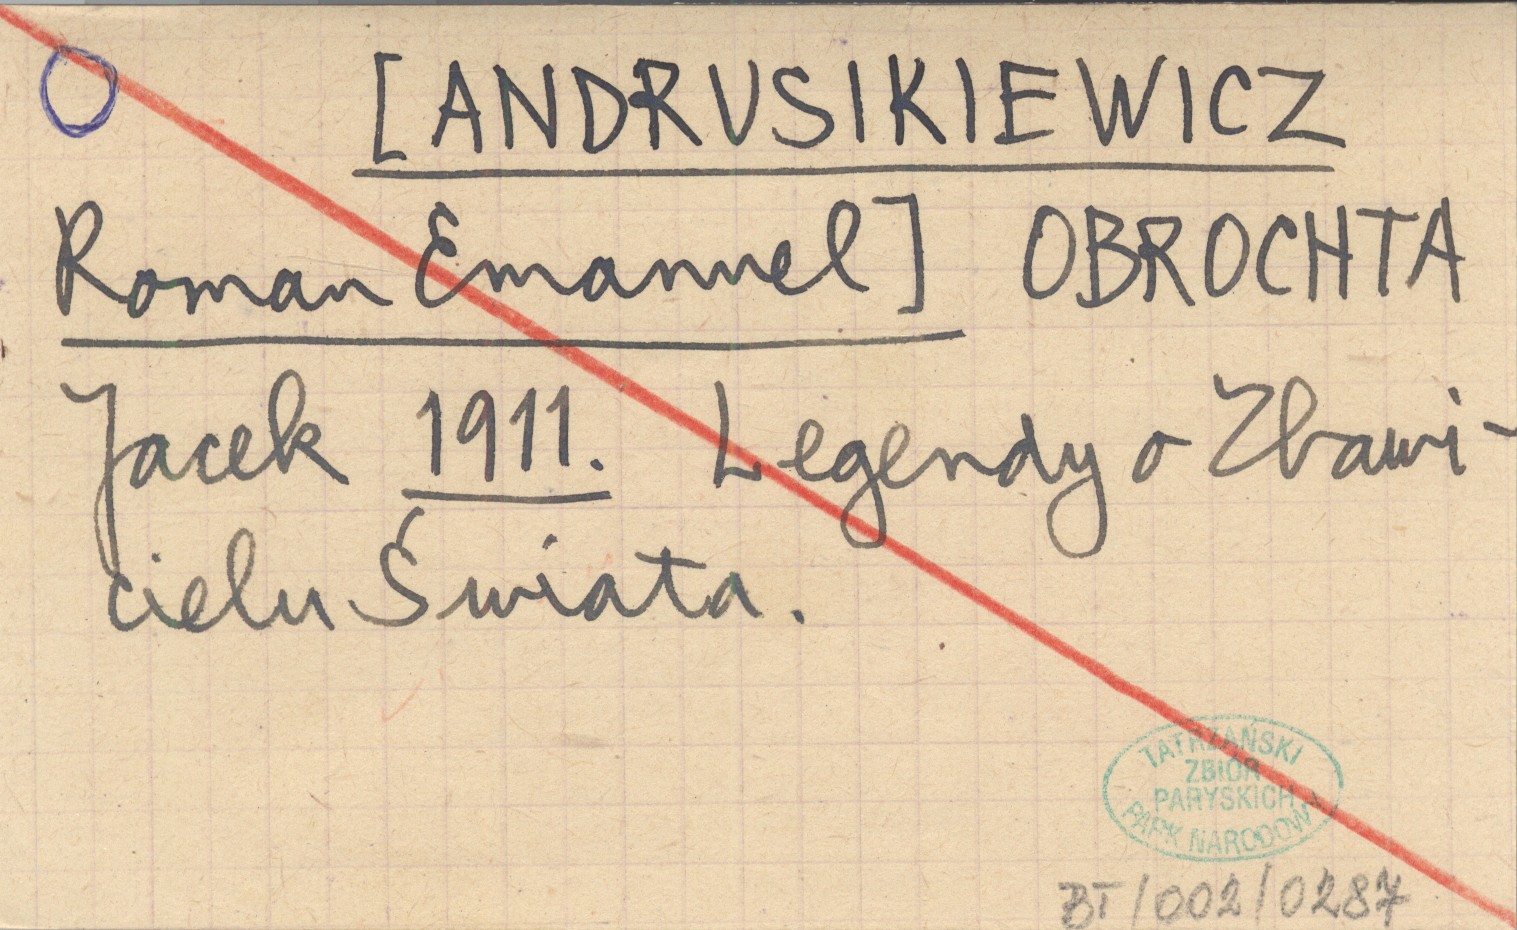 [ANDRUSIKIEWICZ
Roman Emanuel] OBROCHTA
Jacek 1911. Legendy o Zbawi-
cielu Świata.
TATRZAŃSKI
ZBIÓR
PARYSKICH
PARK NARODOWY
BT/002/0287